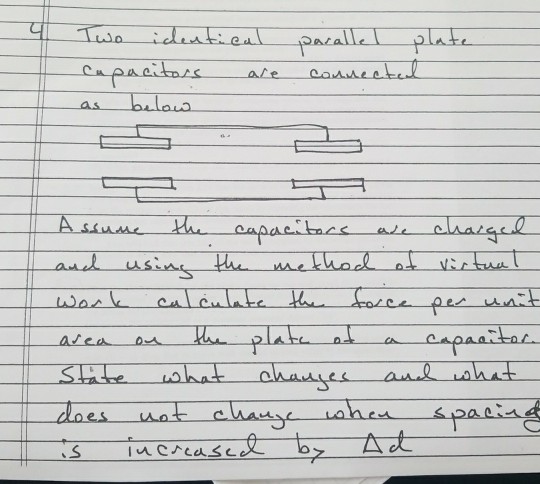 4 Two identical parallel plate
capacitors are connected
as below
Assume the capacitors are charged
and using the method of virtual
work calculate the force per unit
area on the plate of a capacitor.
State what changes and what
does not change when spacing
is increased by Δd